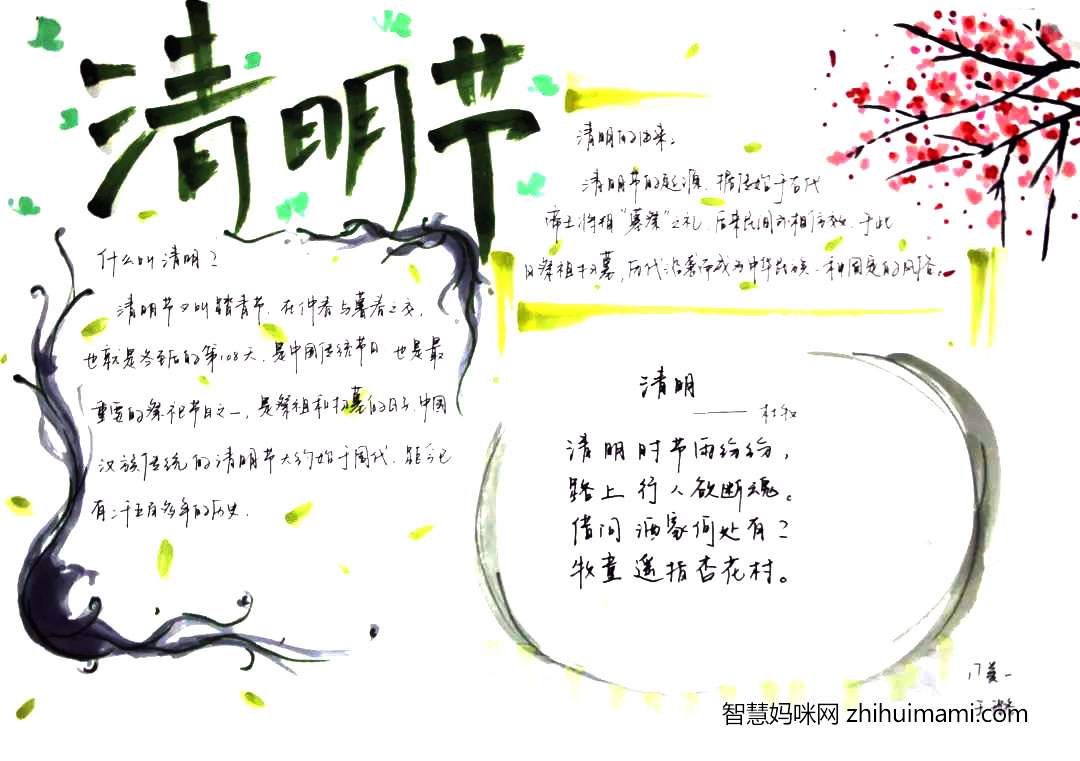 清明节
什么叫清明?
清明节又叫踏青节,在仲春与暮春之交,
也就是冬至后的第108天,是中国传统节日 也是最
重要的祭祀节日之一,是祭祖和扫墓的日子.中国
汉族传统的清明节大约始于周代,距今已
有二千五百多年的历史.
清明的由来。
清明节的起源,据传始于古代
帝王将相“墓祭”之礼,后来民间亦相仿效,于此
日祭祖扫墓,历代沿袭而成为中华民族一种固定的风俗。
清明
—— 杜牧
清明时节雨纷纷,
路上行人欲断魂。
借问酒家何处有?
牧童遥指杏花村。
智慧妈咪网 zhihuimami.com